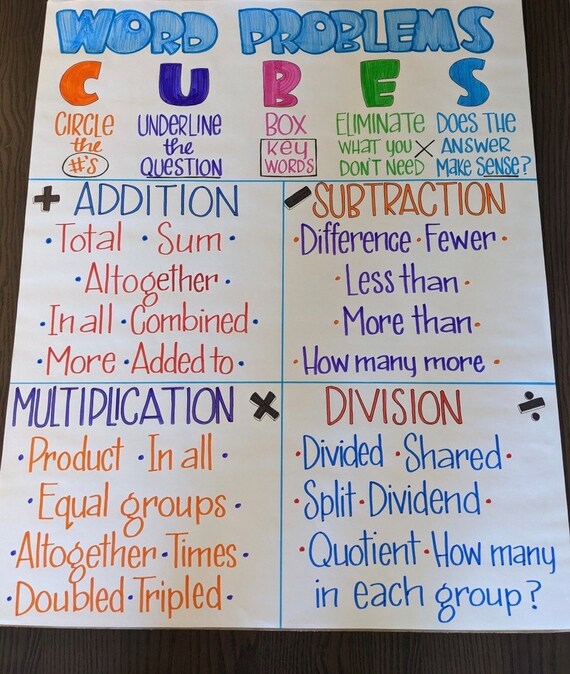 WORD PROBLEMS
C U B E S
CIRCLE the #'S
UNDERLINE the QUESTION
BOX KEY WORDS
ELIMINATE WHAT YOU DON'T NEED
DOES THE ANSWER MAKE SENSE?
+ ADDITION
• Total • Sum •
• Altogether •
• In all • Combined •
• More • Added to •
− SUBTRACTION
• Difference • Fewer •
• Less than •
• More than •
• How many more •
MULTIPLICATION ×
• Product • In all •
• Equal groups •
• Altogether • Times •
• Doubled • Tripled •
DIVISION ÷
• Divided • Shared •
• Split • Dividend •
• Quotient • How many
in each group?